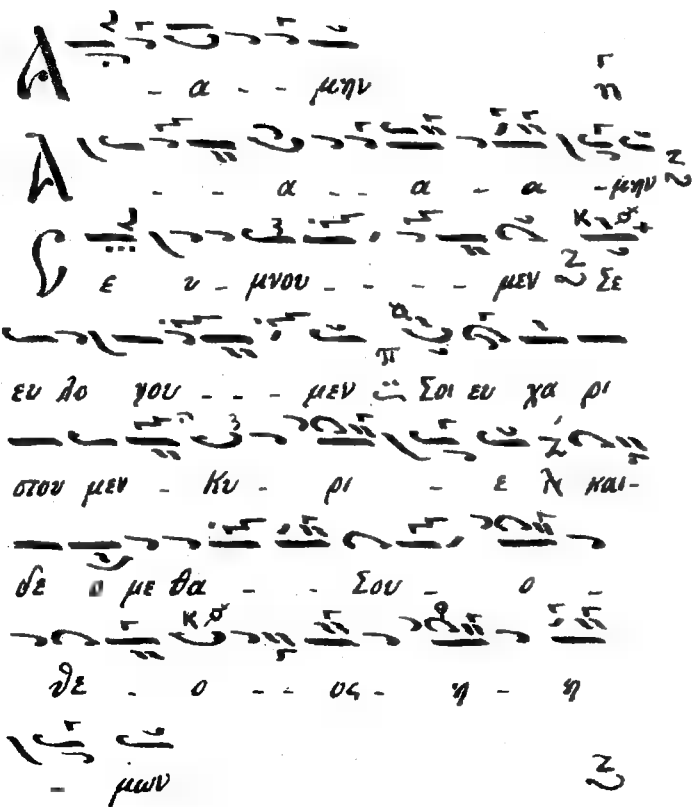 Α - α - - μην
Α - - α - - α - α - μην
Σ ε υ - μνου - - - - - μεν Σε
ευ λο γου - - - μεν Σοι ευ χα ρι
στου μεν - Κυ - ρι - ε και -
δε ο με θα - - Σου - ο -
θε - ο - - ος - η - η
- μων